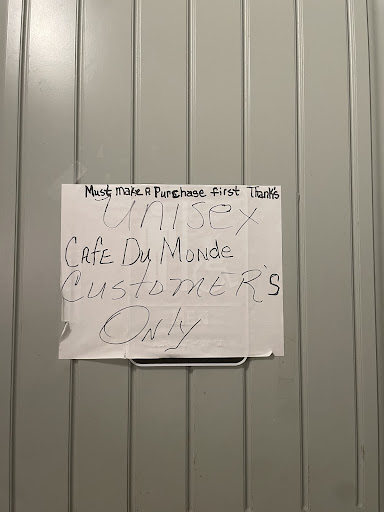 Must make A Purchase first Thank's
Unisex
CAFE Du MoNDE
CustomER's
Only